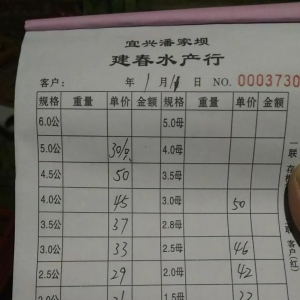 宜兴潘家坝
建春水产行
客户: 年 1月 日 NO. 0003730
规格 重量 单价 金额 规格 重量 单价 金额
6.0公 5.0母
5.0公 4.0母
4.5公 50 3.5母
4.0公 45 3.0母 50
3.5公 37 2.8母
3.0公 33 2.5母 46
2.5公 29 2.0母 42
1.5母